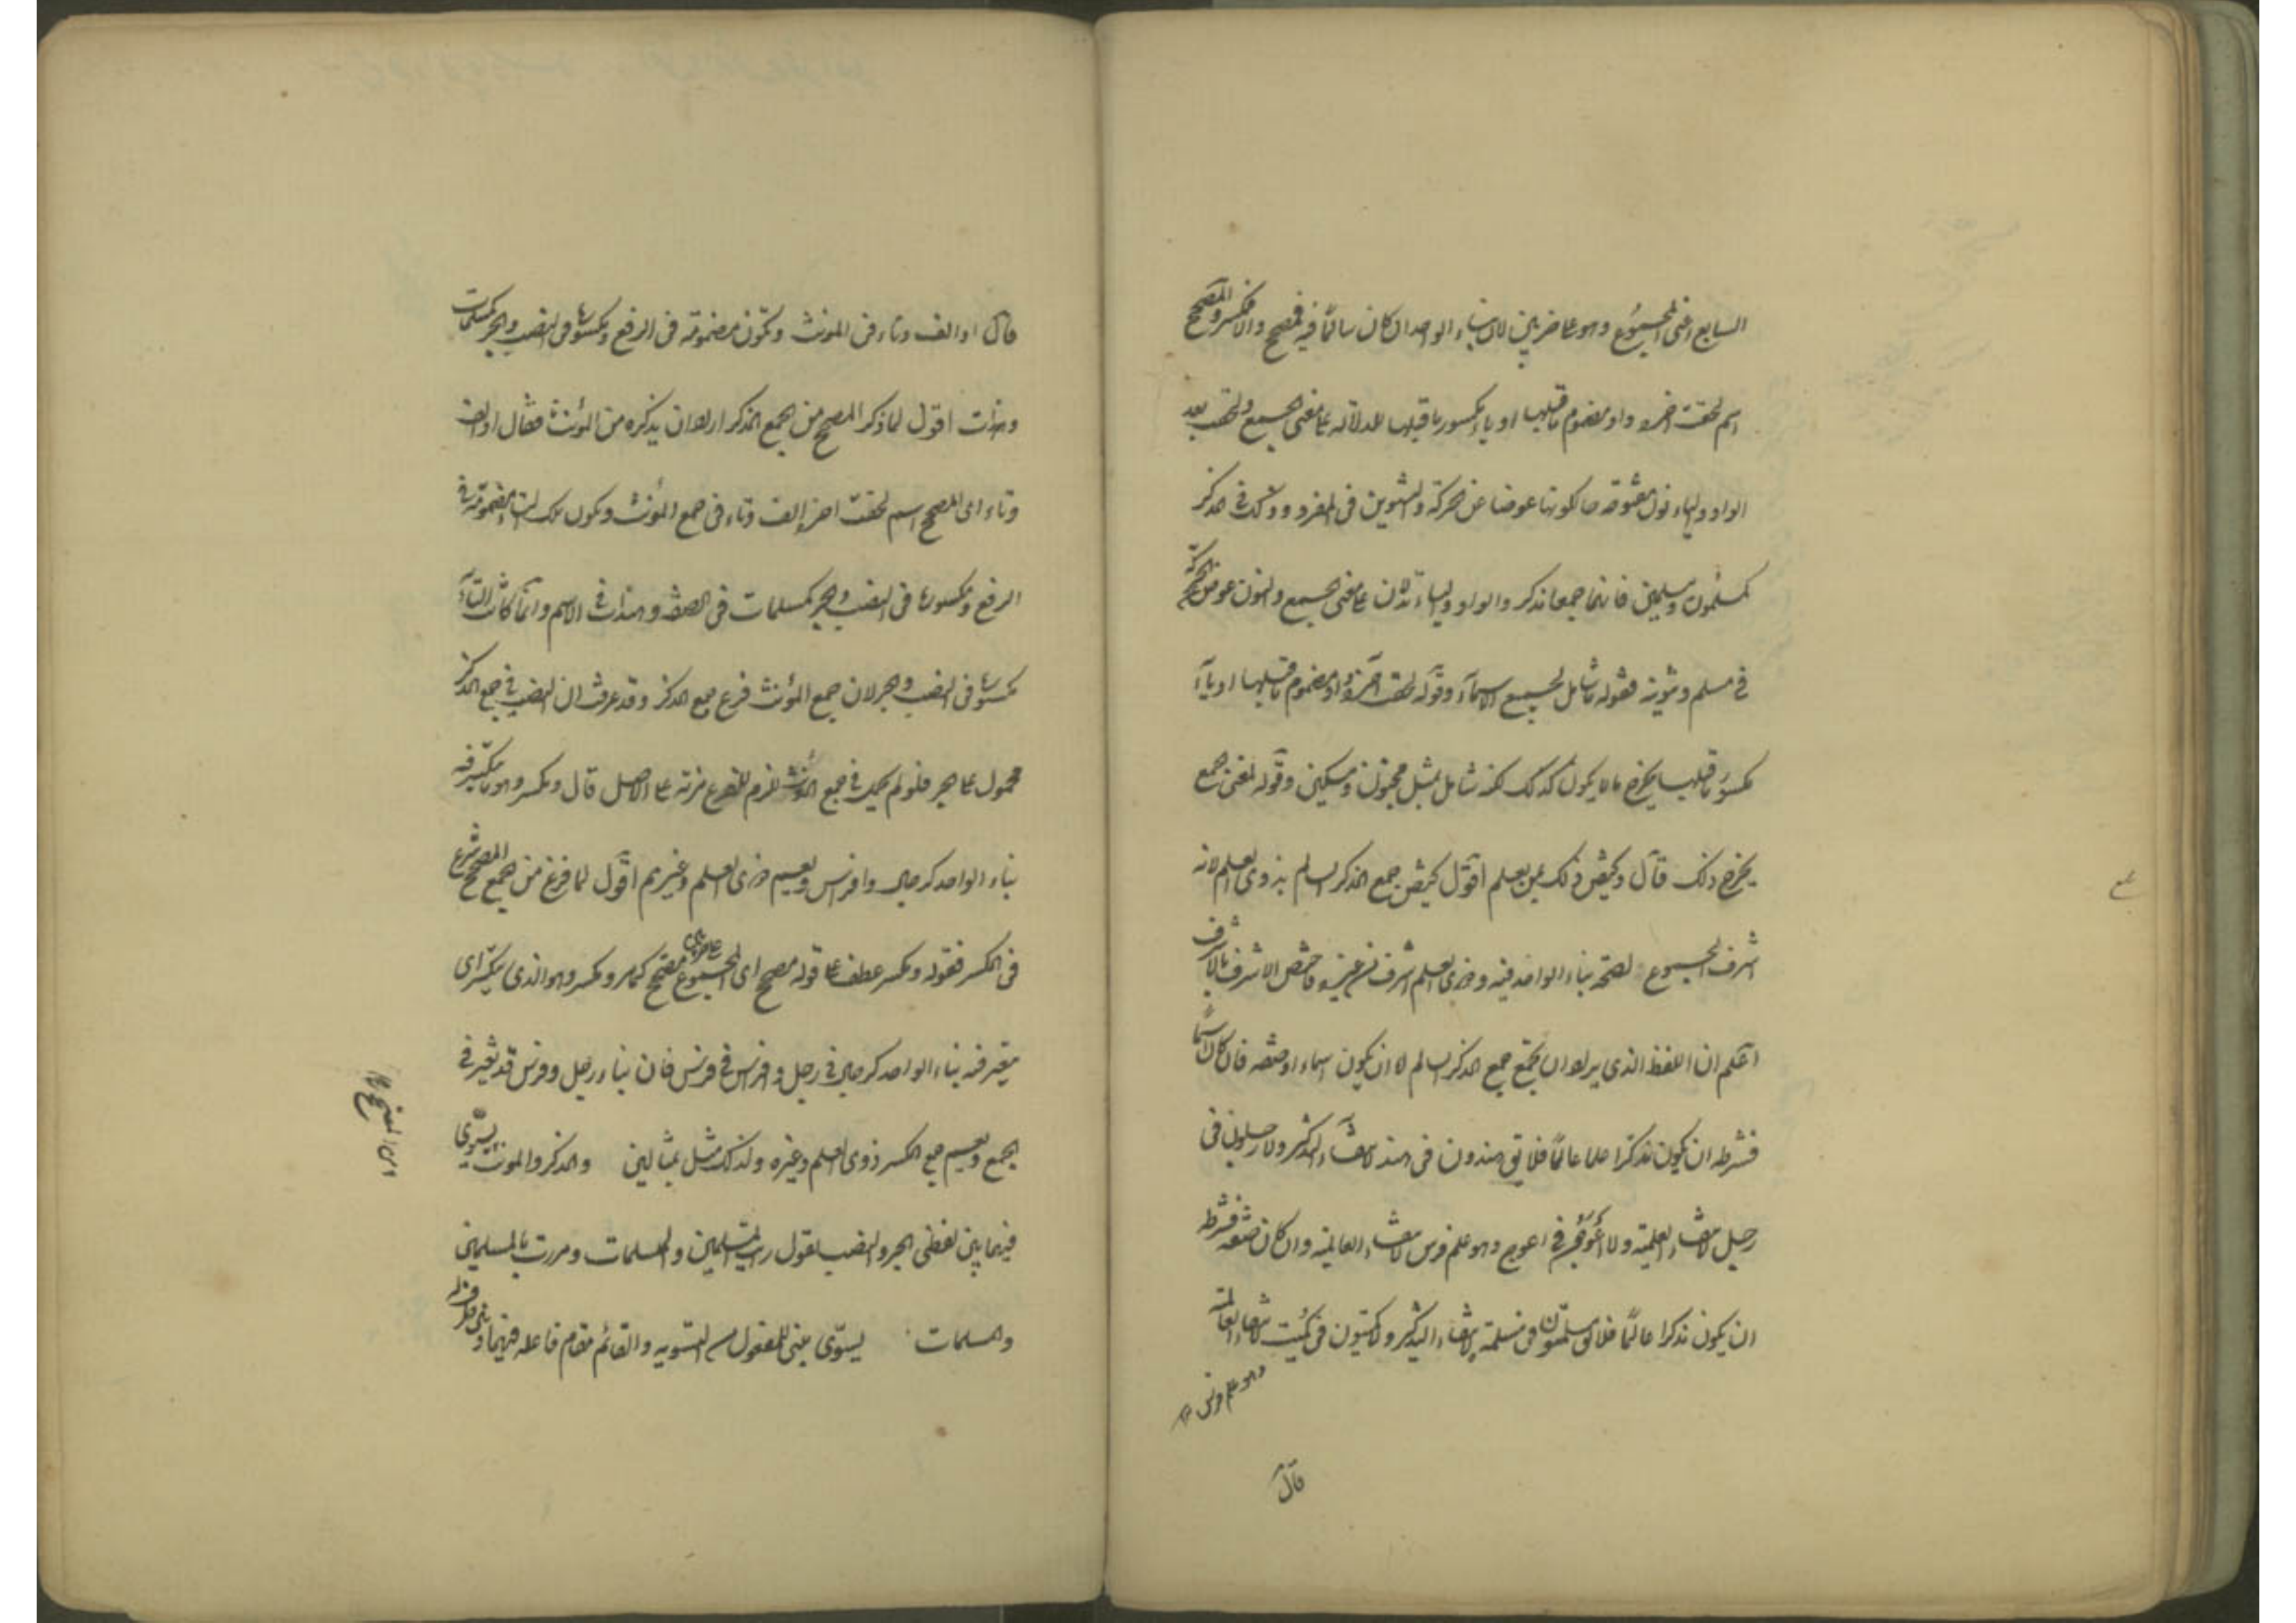 السابع اعنى المجموع وهو على ضربين لان بناء الواحد ان كان سالما فيه فمصحح والا فمكسر والمصحح
اسم لحقت اخره واو مضموم ما قبلها او ياء مكسور ما قبلها للدلالة على معنى الجمع ولحقت بعد
الواو والياء نون مفتوحة حال كونها عوضا عن الحركة والتنوين فى المفرد وذلك فى المذكر
كمسلمون ومسلمين فانهما جمعا مذكر والواو والياء تدلان على معنى الجمع والنون عوض الحركة
فى مسلم وتنوينه فقوله ما شامل لجميع الاسماء وقوله لحقت آخره واو مضموم ما قبلها او ياء
مكسور ما قبلها يخرج ما لا يكون كذلك لكنه شامل لمثل مجنون ومسكين وقوله لمعنى الجمع
يخرج ذلك قال ويختص ذلك بمن يعلم اقول يختص جمع المذكر السالم بذوى العلم لانه
اشرف الجموع لصحة بناء الواحد فيه وذوى العلم اشرف من غيره فاختص الاشرف بالاشرف
اعلم ان اللفظ الذى يراد ان يجمع جمع المذكر السالم لا ان يكون اسما او صفة فان كان اسما
فشرطه ان يكون مذكرا علما عالما فلا يق هندون فى هند لانتفاء التذكير ولا رجلون فى
رجل لانتفاء العلمية ولا اعوجون فى اعوج وهو علم فرس لانتفاء العالمية وان كان صفة فشرطه
ان يكون مذكرا عالما فلا يق مسلمون فى مسلمة لانتفاء التذكير ولا كميتون فى كميت لانتفاء العالمية
وهو علم فرس
قال
قال او الف وتاء فى المونث وتكون مضمومة فى الرفع ومكسورة فى النصب والجر كمسلمات
وهندات اقول لما ذكر المصحح من الجمع المذكر اراد ان يذكره من المؤنث فقال او الف
وتاء اى المصحح اسم لحقت اخره الف وتاء فى جمع المؤنث وتكون تلك التاء مضمومة فى
الرفع ومكسورة فى النصب والجر كمسلمات فى الصفة وهندات فى الاسم وانما كانت التاء
مكسورة فى النصب والجر لان جمع المؤنث فرع جمع المذكر وقد عرفت ان النصب فى جمع المذكر
محمول على الجر فلو لم يحمل فى جمع المؤنث للزم للفرع مزية على الاصل قال ومكسر وهو ما يتكسر فيه
بناء الواحد كرجال وافراس ويعم ذوى العلم وغيرهم اقول لما فرغ من الجمع المصحح شرع
فى المكسر فقوله ومكسر عطف على قوله مصحح اى المجموع على ضربين مصحح كما مر ومكسر وهو الذى يتكسر اى
يتغير فيه بناء الواحد كرجال فى رجل وافراس فى فرس فان بناء رجل وفرس قد تغير فى
الجمع ويعم جمع المكسر ذوى العلم وغيره ولذلك مثل بمثالين والمذكر والمونث يسوّى
فيهما بين لفظى الجر والنصب تقول رايت المسلمين والمسلمات ومررت بالمسلمين
والمسلمات يسوّى مبنى للمفعول من التسوية والقائم مقام فاعله فيهما